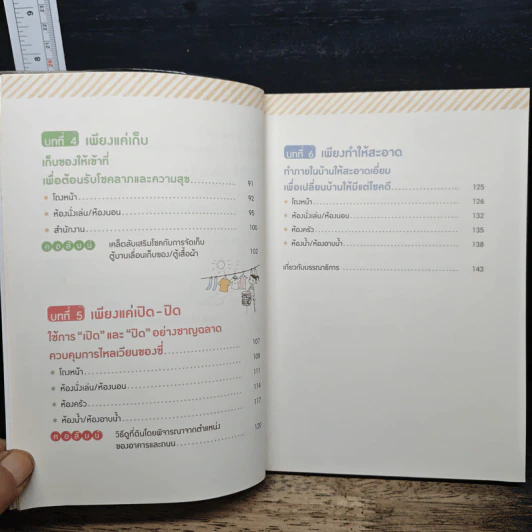 บทที่ 4 เพียงแค่เก็บ
เก็บของให้เข้าที่
เพื่อต้อนรับโชคลาภและความสุข 91
โถงหน้า 92
ห้องนั่งเล่น/ห้องนอน 95
สำนักงาน 100
คอลัมน์ เคล็ดลับเสริมโชคกับการจัดเก็บ
ตู้บานเลื่อนเก็บของ/ตู้เสื้อผ้า 102
บทที่ 5 เพียงแค่เปิด-ปิด
ใช้การ "เปิด" และ "ปิด" อย่างชาญฉลาด 107
ควบคุมการไหลเวียนของชี่ 109
โถงหน้า 111
ห้องนั่งเล่น/ห้องนอน 114
ห้องครัว 117
ห้องน้ำ/ห้องอาบน้ำ
คอลัมน์ วิธีดูที่ดินโดยพิจารณาจากตำแหน่ง
ของอาคารและถนน
บทที่ 6 เพียงทำให้สะอาด
ทำภายในบ้านให้สะอาดเอี่ยม
เพื่อเปลี่ยนบ้านให้มีแต่โชคดี 125
โถงหน้า 126
ห้องนั่งเล่น/ห้องนอน 132
ห้องครัว 135
ห้องน้ำ/ห้องอาบน้ำ 138
เกี่ยวกับบรรณาธิการ 143